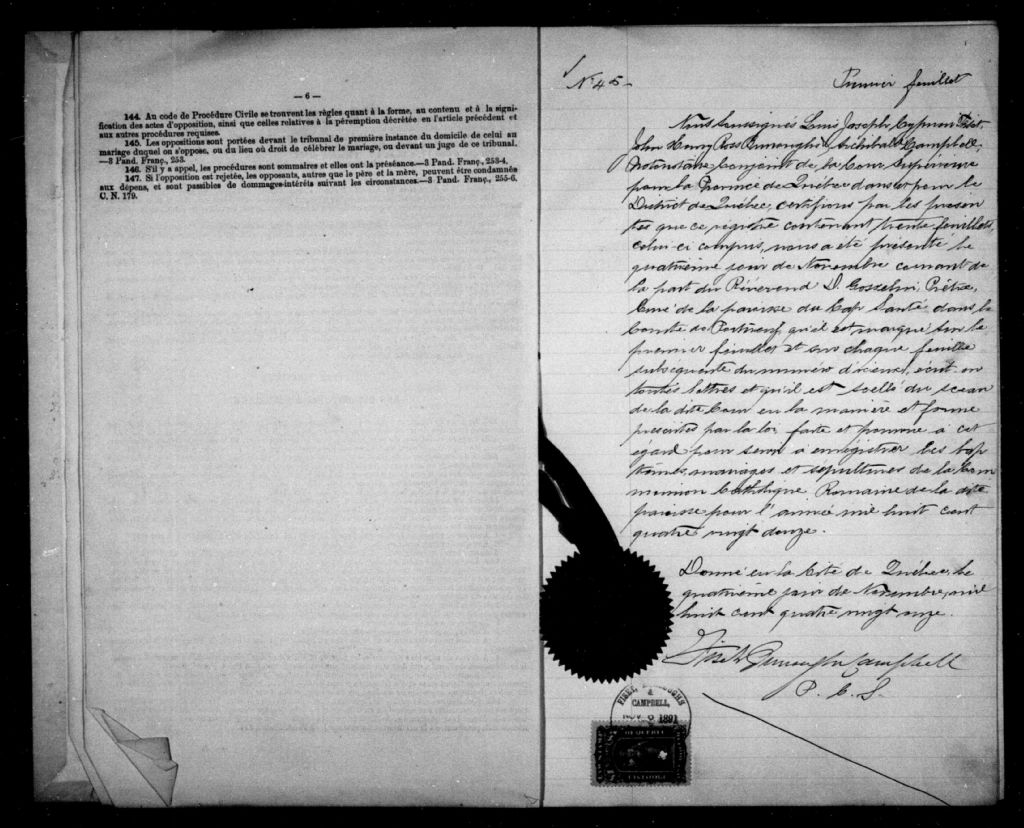 — 6 —
144. Au code de Procédure Civile se trouvent les règles quant à la forme, au contenu et à la signi-
fication des actes d'opposition, ainsi que celles relatives à la péremption décrétée en l'article précédent et
aux autres procédures requises.
145. Les oppositions sont portées devant le tribunal de première instance du domicile de celui au
mariage duquel on s'oppose, ou du lieu où droit de célébrer le mariage, ou devant un juge de ce tribunal.
—3 Pand. Franç., 253.
146. S'il y a appel, les procédures sont sommaires et elles ont la préséance.—3 Pand. Franç., 253-4.
147. Si l'opposition est rejetée, les opposants, autres que le père et la mère, peuvent être condamnés
aux dépens, et sont passibles de dommages-intérêts suivant les circonstances.—3 Pand. Franç., 255-6.
C. N. 179.
No 45
Premier feuillet
Nous Soussignés Louis Joseph Cyprien Fiset,
John Henry Ross Burroughs & Archibald Campbell,
Protonotaire Conjoint de la Cour Supérieure
pour la Province de Québec dans et pour le
District de Québec, certifions par les présen
tes que ce régistre contenant trente feuillets,
celui-ci compris, nous a été présenté le
quatrième jour de Novembre courant de
la part du Révérend D. Gosselin, Prêtre,
Curé de la paroisse du Cap Santé dans le
Comté de Portneuf, qu'il est marqué sur le
premier feuillet et sur chaque feuille
subséquente du numéro d'icieux, écrit en
toutes lettres et qu'il est scellé du sceau
de la dite Cour en la manière et forme
prescrites par la loi faite et pourvue à cet
égard pour servir à enrégistrer les bap
têmes, mariages et sépultures de la Com
munion Catholique Romaine de la dite
paroisse pour l'année mil huit cent
quatre vingt douze.
Donné en la Cité de Québec, le
quatrième jour de Novembre, mil
huit cent quatre vingt onze.
Fiset Burroughs Campbell
P. C. S.
FISET, BURROUGHS
&
CAMPBELL,
NOV 6 1891